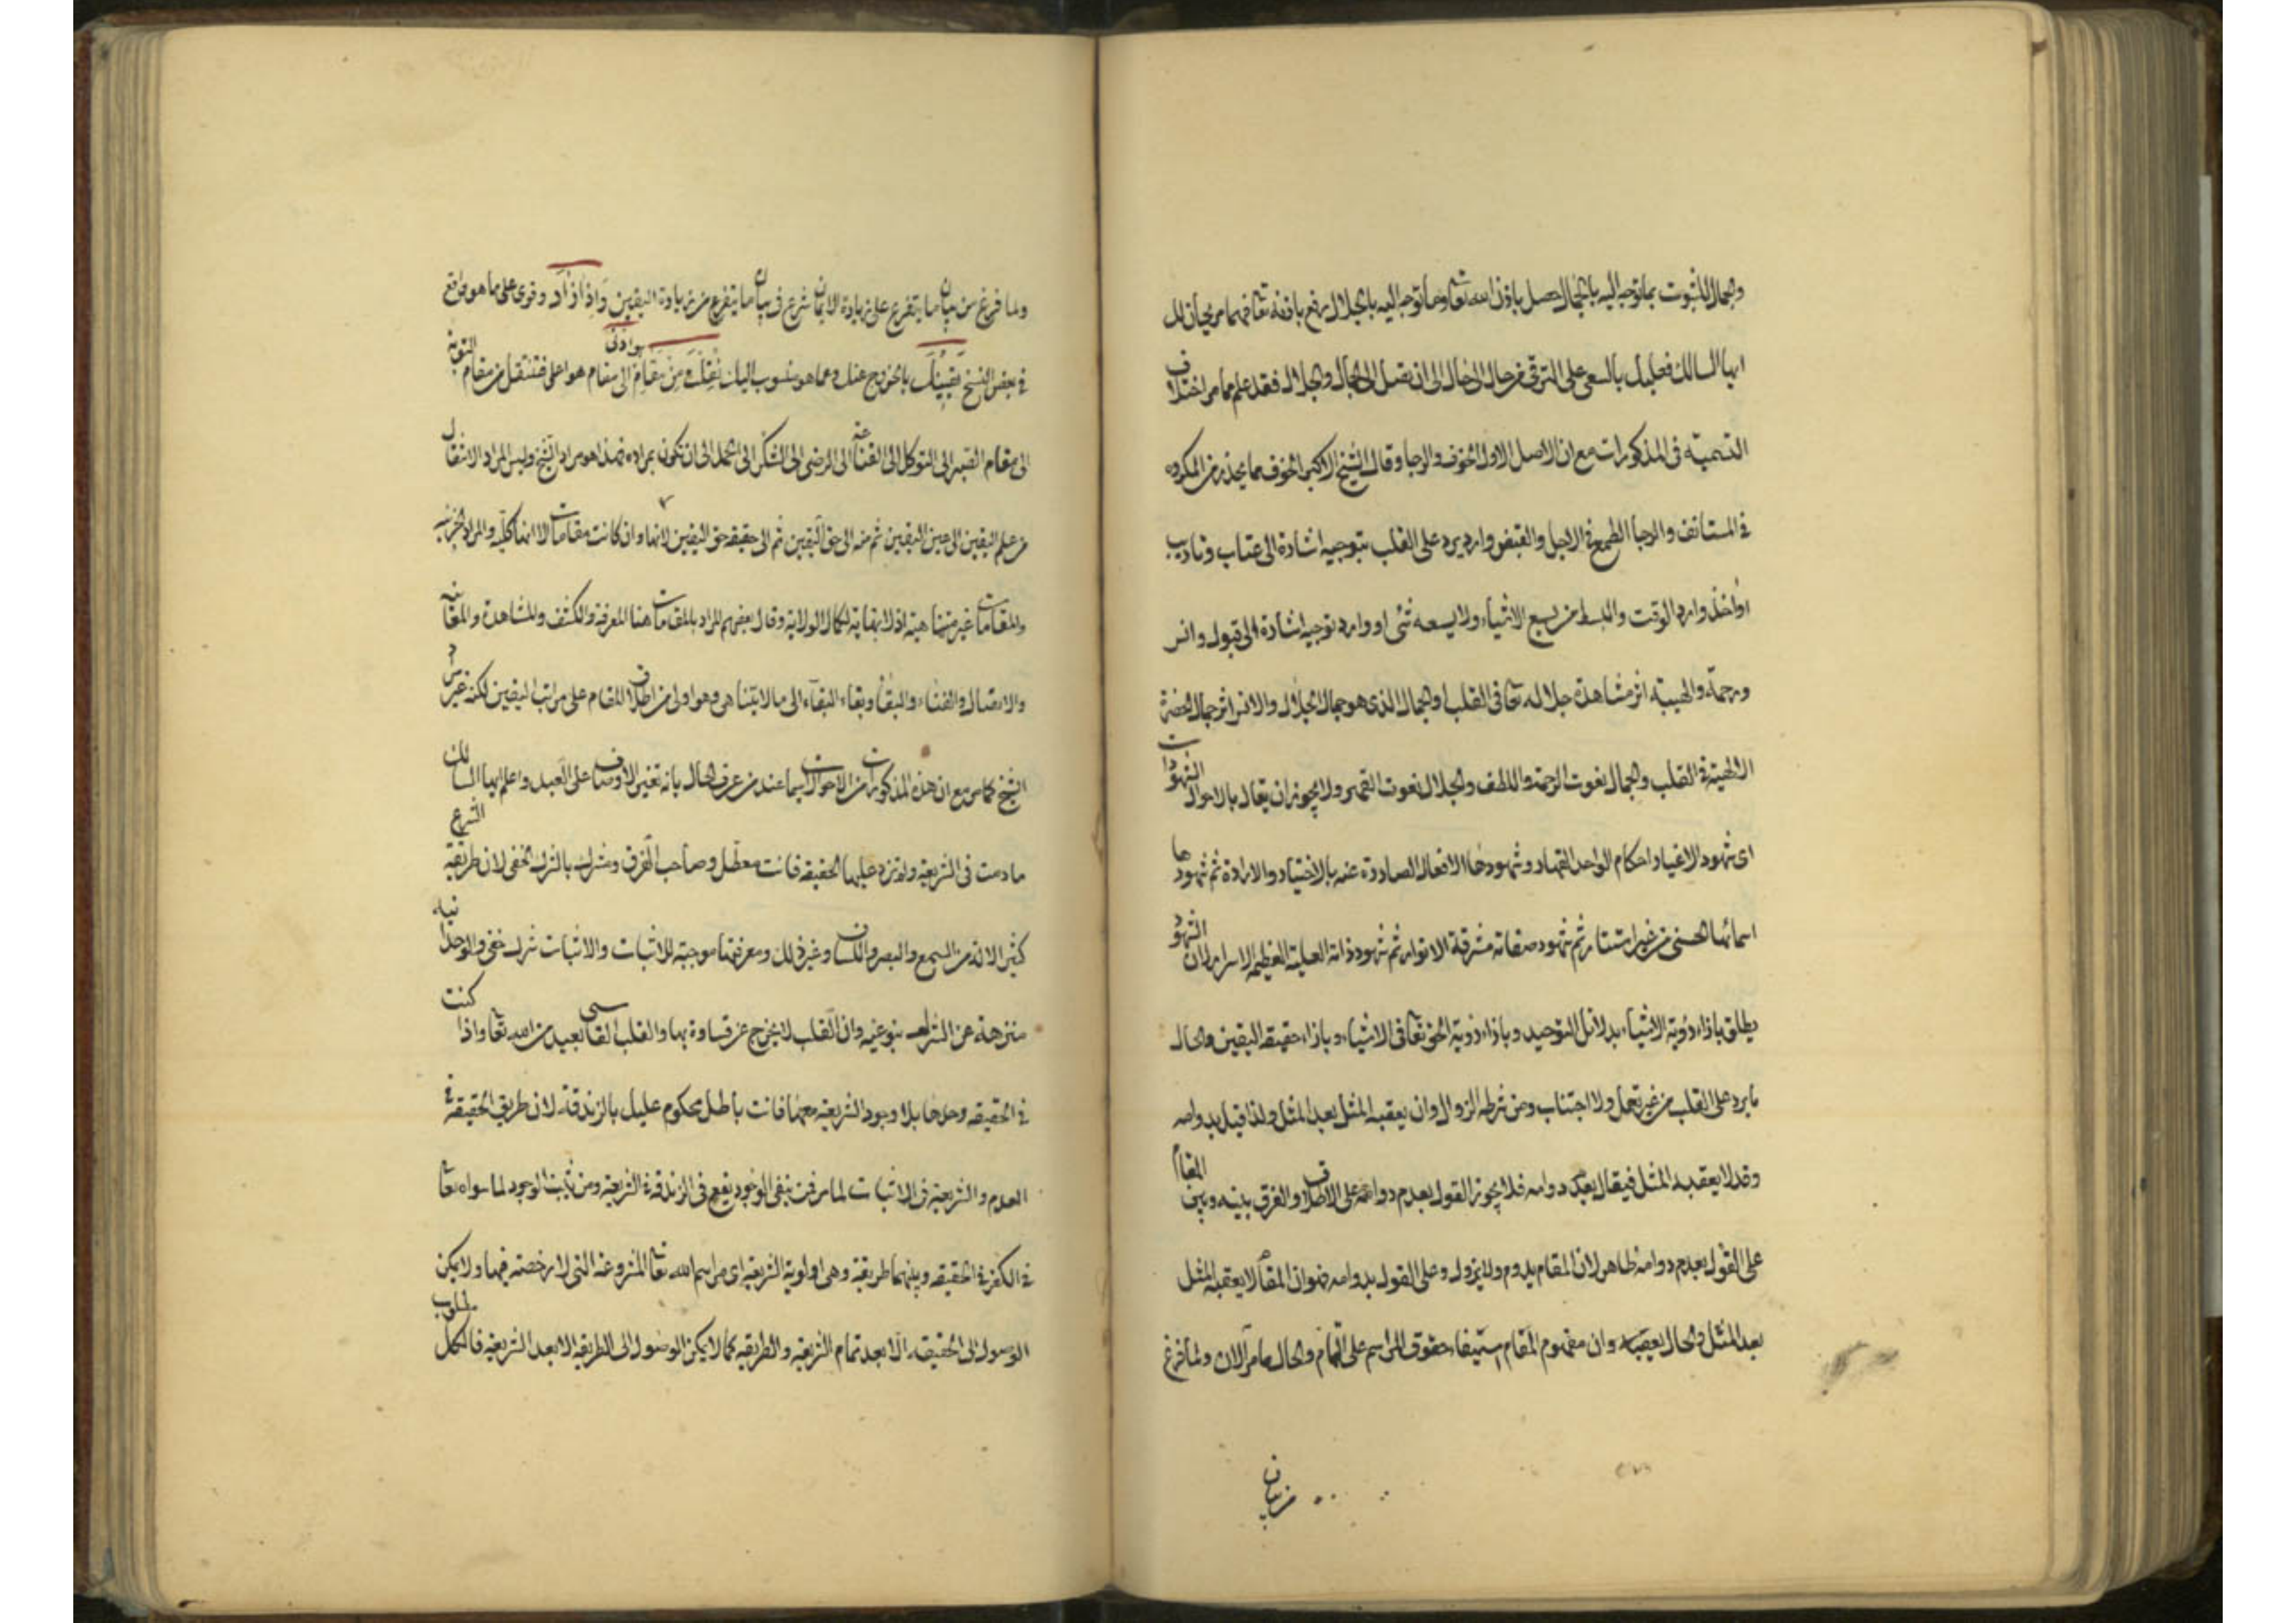 والجمال للثبوت بما توجه اليه بالجمال حصل باذن الله تعا وما توجه اليه بالجلال رفع باذنه تعا فهما مرجعان لك
ايها السالك فعليك بالسعى على الترقى من حال الى حال الى ان تصل الى الجمال والجلال فقد علم مما مر اختلاف
التسمية فى المذكورات مع ان الاصل الاول الخوف والرجا وقال الشيخ الاكبر الخوف مما يحذر من المكروه
فى المستانف والرجا الطمع فى الاجل والقبض وارد يرد على القلب بتوجيه اشارة الى عتاب وتاديب
او اخذ وارد الوقت والبسط من يسع الاشياء ولا يسعه شئ او وارد توجيه اشارة الى قبول وانس
ورحمة والهيبة اثر مشاهدة جلاله تعا فى القلب او الجمال الذى هو جمال الجلال والانس اثر جمال الحضرة
الالهية فى القلب والجمال نعوت الرحمة واللطف والجلال نعوت القهر ولا يجوز ان يقال بالاحوال الشهودات
اى شهود الاغيار احكام الواحد القهار وشهودها الافعال الصادرة عنه بالاختيار والارادة ثم شهودها
اسمائها الحسنى من غير استتار ثم شهود صفاته مشرقة الانوار ثم شهود ذاته العلية العظيمة الاسرار لان الشهود
يطلق بازاء رؤية الاشياء بدلائل التوحيد وبازاء رؤية الحق تعا فى الاشياء وبازاء حقيقة اليقين والحال
ما يرد على القلب من غير تعمل ولا اجتناب ومن شرطه الزوال وان يعقبه المثل بعد المثل ولذا قيل بدوامه
وقد لا يعقبه المثل فيقال بعدم دوامه فلا يجوز القول بعدم دوامه على الاطلاق والفرق بينه وبين المقام
على القول بعدم دوامه ظاهر لان المقام يدوم ولا يزول وعلى القول بدوامه فهو ان المقام لا يعقبه المثل
بعد المثل والحال يعقبه وان مفهوم المقام استيفاء حقوق المراسم على التمام والحال ما مر الان ولما فرغ
من بيان
ولما فرغ من بيان ما يتفرع على زيادة الايمان شرع فى بيان ما يتفرع من زيادة اليقين واذا زاد وقوى على ما هو واقع
فى بعض النسخ يقينك بالخروج عنك وعما هو منسوب اليك نقلت من مقام الى مقام هو اعلى فتنتقل من مقام التوبة
الى مقام الصبر الى التوكل الى القناعة الى الرضى الى الشكر الى الحمد الى ان تكون بمراده فهذا هو مراد الشيخ وليس المراد الانتقال
من علم اليقين الى عين اليقين ثم منه الى حق اليقين ثم الى حقيقة حق اليقين لانها وان كانت مقامات الا انها كلية والمراد الجزئية
والمقامات غير متناهية اذ لا نهاية لكمال الولاية وقال بعضهم المراد بالمقامات هنا المعرفة والكشف والمشاهدة والمعاينة
والاتصال والفناء والبقا وبقاء البقاء الى ما لا يتناهى وهو اولى من اطلاق المقام على مراتب اليقين لكنه غير مراد
الشيخ كما مر مع ان هذه المذكورات من الاحوال سيما عند من عرف الحال بانه تغير الاوصاف على العبد واعلم ايها السالك
ما دمت فى الشريعة ولم ترد عليها الحقيقة فانت معطل وصاحب الفرق ومشرك بالشرك الخفى لان طريقة الشرع
كثير الالة من السمع والبصر واللسان وغير ذلك ومعرفتها موجبة للاثبات والاثبات شرك خفى والوحدانية
منزهة عن الشرك بنوعيه وان القلب لا يخرج عن قساوة بها والقلب القاسى بعيد من الله تعا واذا كنت
فى الحقيقة وحدها بلا وجود الشريعة معها فانت باطل محكوم عليك بالزندقة لان طريق الحقيقة فى
العدم والشريعة فى الاثبات لما مر فمن ينفى الوجود يقع فى الزندقة فى الشريعة ومن يثبت الوجود لما سواه تعا
فى الكفر فى الحقيقة وبينهما طريقة وهى اولوية الشريعة اى مراسم الله تعا المشروعة التى لا رخصة فيها ولا يمكن
الوصول الى الحقيقة الا بعد تمام الشريعة والطريقة كما لا يمكن الوصول الى الطريقة الا بعد الشريعة فالكل مطلوب